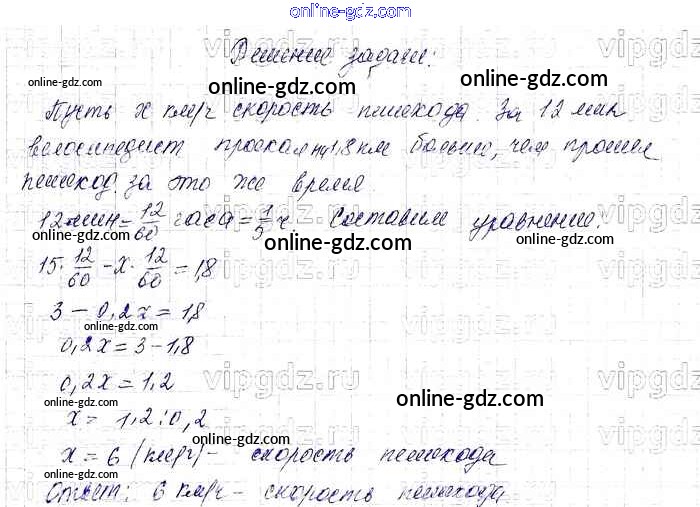 online-gdz.com
Решение задачи:
Пусть x км/ч скорость пешехода. За 12 мин
велосипедист проехал на 1,8 км больше, чем прошел
пешеход за это же время.
12 мин = 12/60 часа = 1/5 ч. Составим уравнение:
15 · 12/60 − x · 12/60 = 1,8
3 − 0,2x = 1,8
0,2x = 3 − 1,8
0,2x = 1,2
x = 1,2 : 0,2
x = 6 (км/ч) − скорость пешехода
Ответ: 6 км/ч − скорость пешехода
online-gdz.com
online-gdz.com
online-gdz.com
online-gdz.com
online-gdz.com
online-gdz.com
online-gdz.com
online-gdz.com
online-gdz.com
online-gdz.com
online-gdz.com
online-gdz.com
online-gdz.com
online-gdz.com
vipgdz.ru
vipgdz.ru
vipgdz.ru
vipgdz.ru